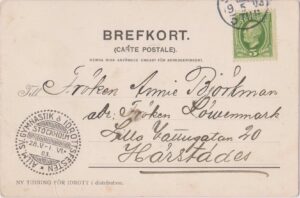 BREFKORT.
(CARTE POSTALE).
5
Till Fröken Annie Björkman
adr. Fröken Löwenmark
Lilla Vattugatan 20
Härstädes
ALLM. SV. GYMNASTIK & IDROTTSFESTEN
STOCKHOLM
28. V - 1. VI.
03.
NY TIDNING FÖR IDROTT i distribution.